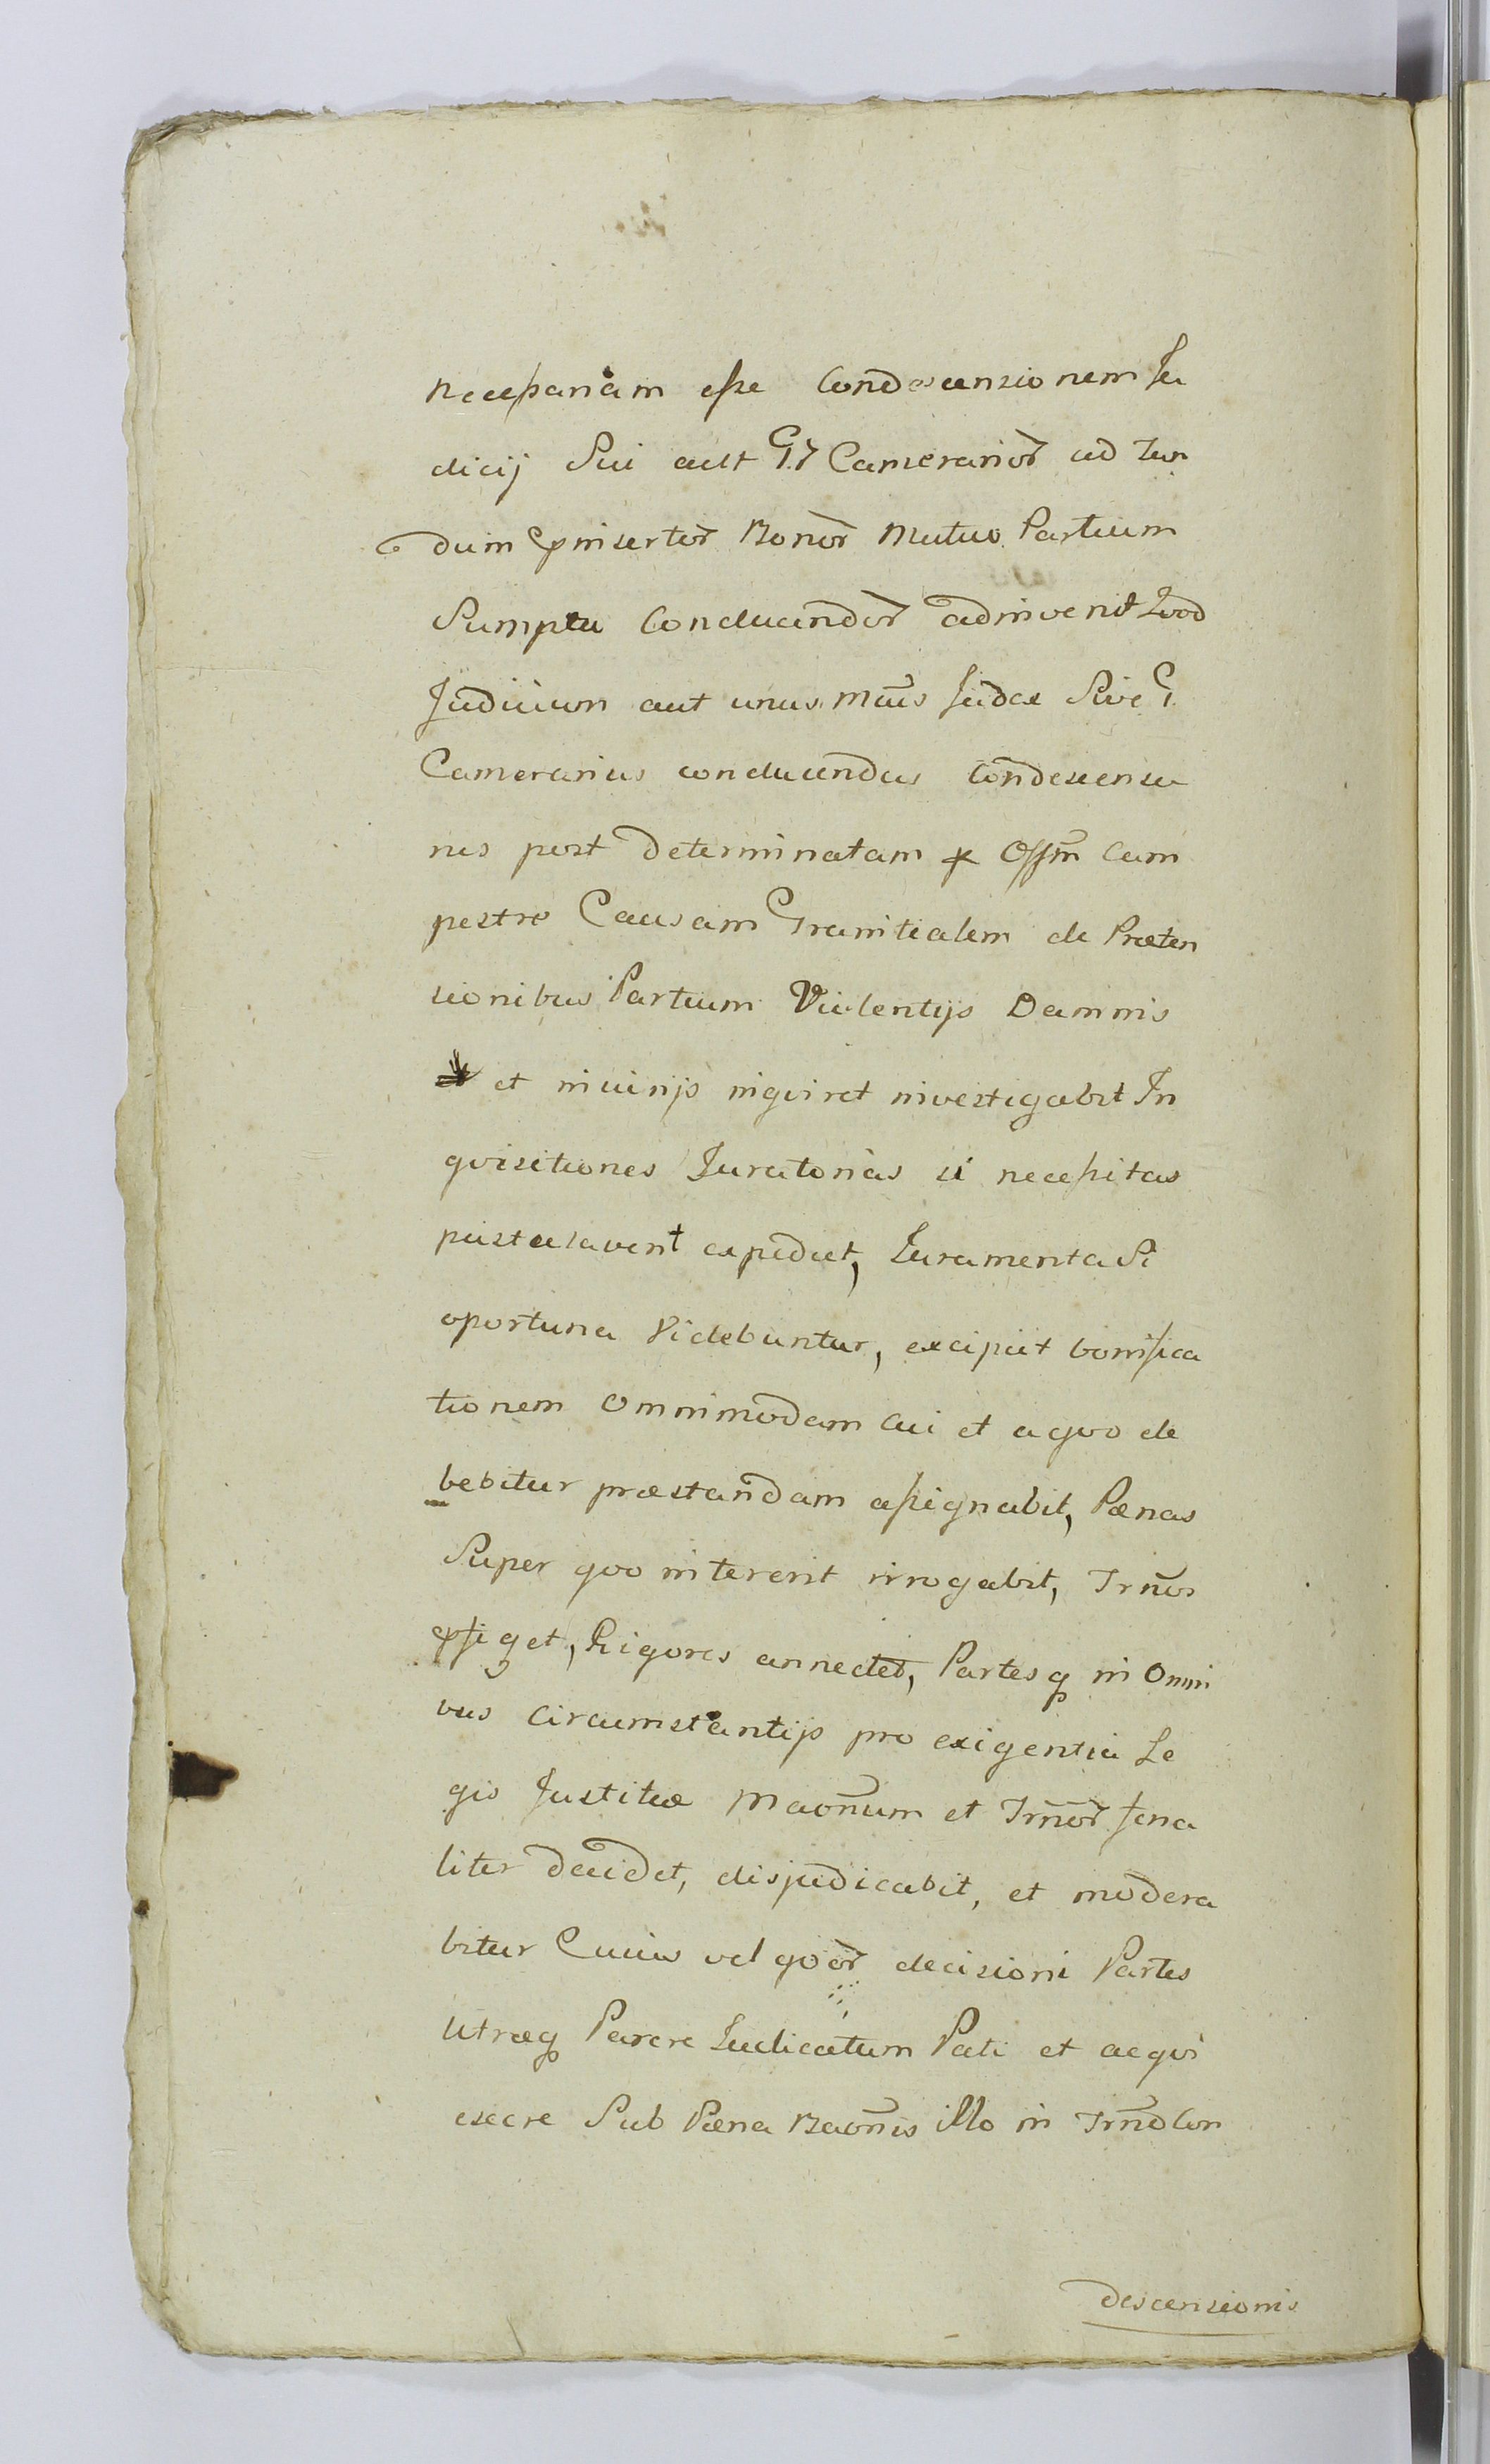 necessariam esse Condescensionem Ju
dicij Sui aut GG Camerarior̄ ad Fun
dum præinsertor̄ Bonor̄ Mutuo Partium
Sumptu Conducendor̄ adinvenit Quod
Judicium aut unus Judex Sive G
Camerarius conducendus Condescensu
rus post determinatam p Offm̄ Cam
pestre Causam Granitialem de Præten
sionibus Partium Violentijs Damnis
et iniurijs inqviret investigabit In
qvisitiones Juratorias si necessitas
postulaverit expediet, Juramenta Si
oportuna Videbuntur, excipiet bonifica
tionem Omnimodam cui et a qvo de
bebitur præstandam assignabit, Pænas
Super qvo intererit irrogabit, Trn̄os
præfiget, Rigores annectet, Partesq in Omni
bus circumstantijs pro exigentia Le
gis Justitiæ Maōnum et Trn̄or̄ fina
liter decidet, disjudicabit, et modera
bitur Cuius vel qvor̄ decisioni Partes
Utræq Parere Judicatum Pati et acqvi
escere Sub Pæna Baōnis illo in Trn̄o Con
descensionis